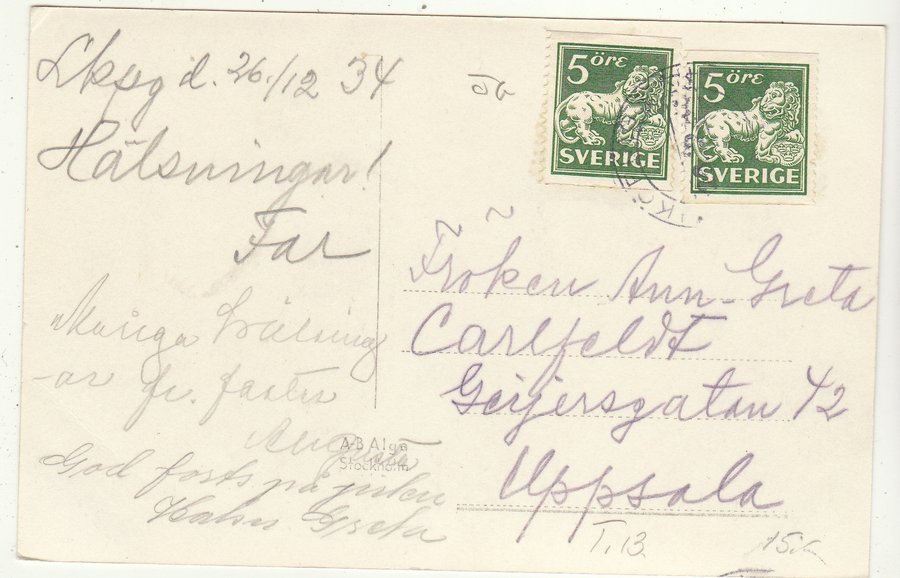 Lkpg d. 26/12 34
Hälsningar!
Far
Många hälsning
-ar fr. faster
Augusta
God forts. på julen
Greta
A-B Alga
Stockholm
5 öre
SVERIGE
5 öre
SVERIGE
Fröken Ann-Greta
Carlfeldt
Geijersgatan 42
Uppsala
T.13.
15:-